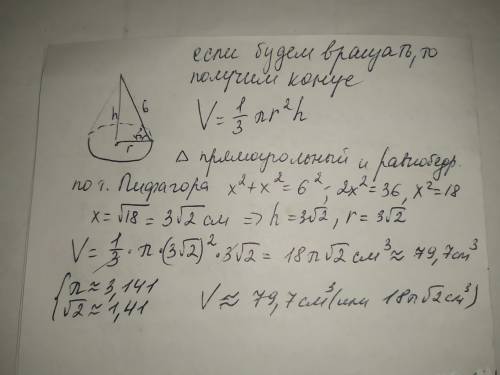 если будем вращать, то
получим конус
h 6
r
V = 1/3 πr²h
△ прямоугольный и равнобедр.
по т. Пифагора x² + x² = 6²; 2x² = 36, x² = 18
x = √18 = 3√2 см => h = 3√2, r = 3√2
V = 1/3 · π · (3√2)² · 3√2 = 18π√2 см³ ≈ 79,7 см³
{ π ≈ 3,141
√2 ≈ 1,41
V ≈ 79,7 см³ (или 18π√2 см³)